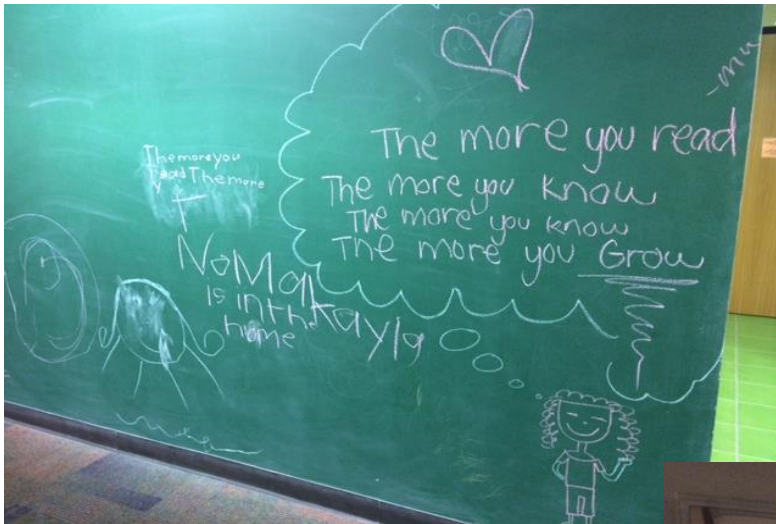 The more you read
The more you know
The more you know
The more you Grow
Themoreyou
readThemore
No Makayla
is in the
home